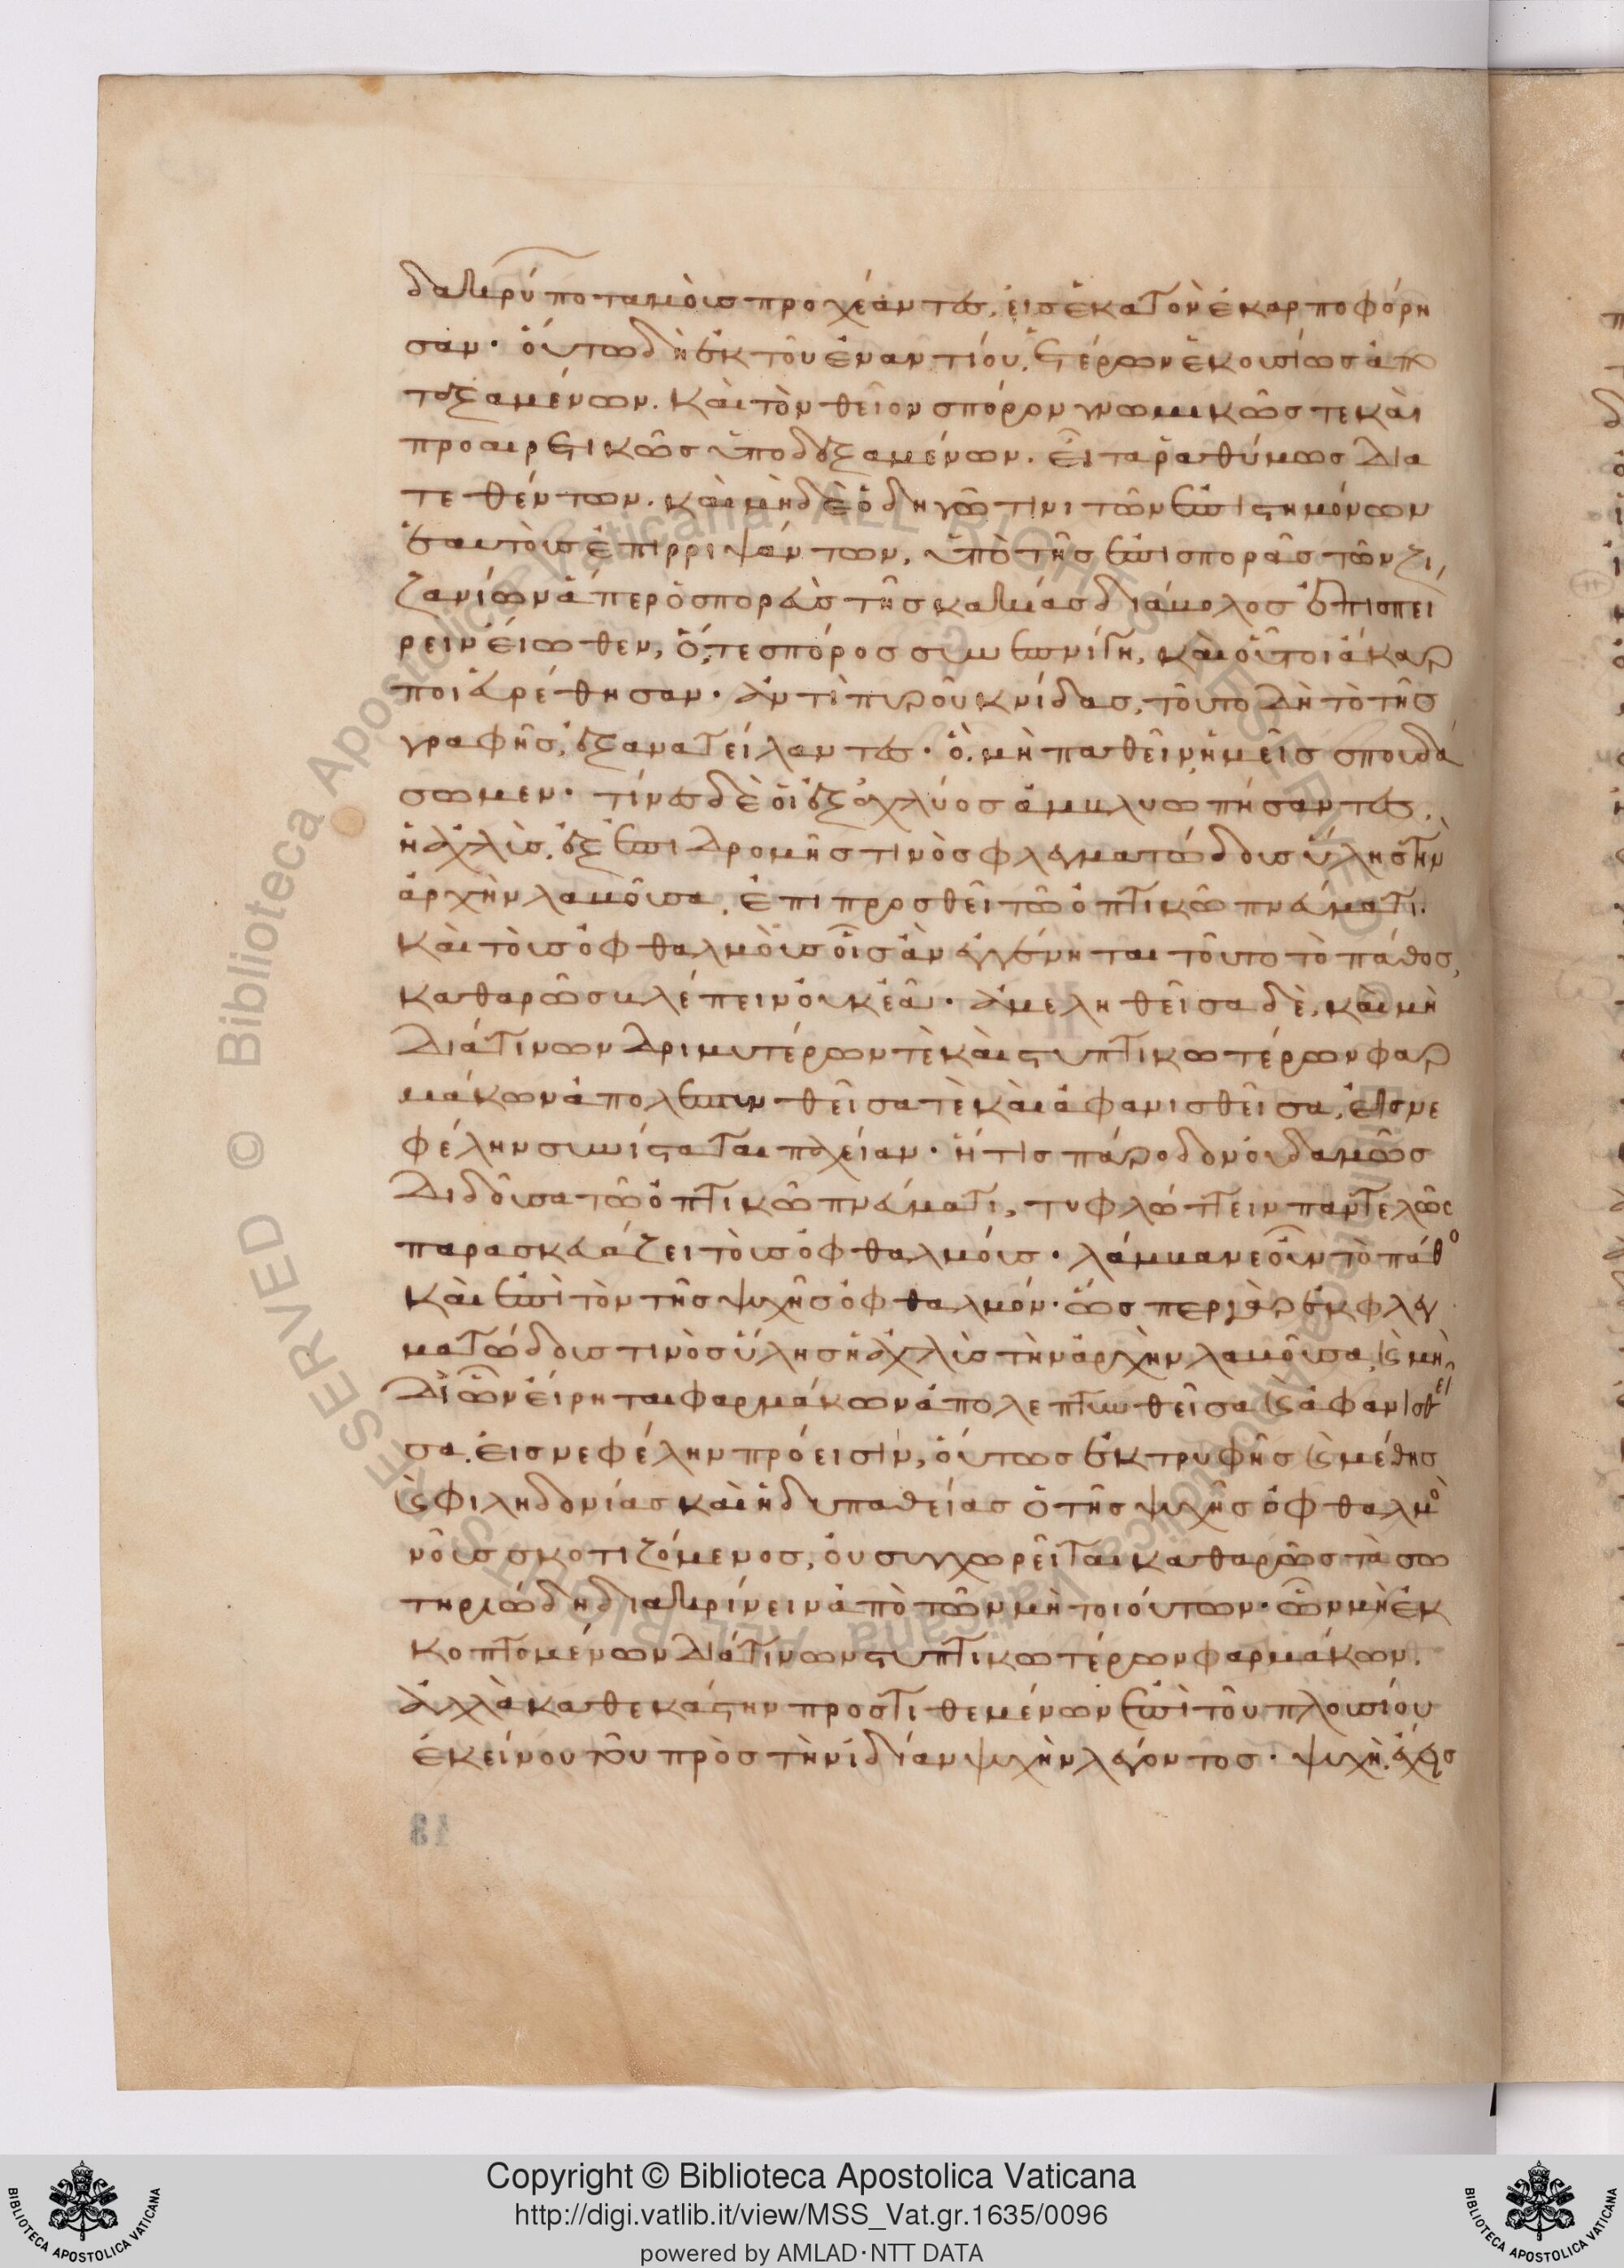 δακρύ ποταμοὺς προχέαντες, εἰς ἑκατὸν ἐκαρποφόρη
σαν· οὕτω δὴ ἐκ τοῦ ἐναντίου, ἑτέρων ἑκουσίως ἀπο
ταξαμένων. καὶ τὸν θεῖον σπόρον γνωμικῶς τε καὶ
προαιρετικῶς ὑποδεξαμένων. εἶτα ῥαθύμως δια
τεθέντων. καὶ μὴδὲ ὁδηγῶ τινι τῶν ἐπιστημόνων
ἑαυτοὺς ἐπιρριψάντων, ὑπὸ τῆς ἐπισπορᾶς τῶν ζι
ζανίων ἅπερ ὁ σπορεὺς τῆς κακίας διάβολος ἐπισπεί
ρειν εἴωθεν, ὅ, τε σπόρος συμπνίγη, καὶ οὗτοι ἄκαρ
ποι εὑρέθησαν· ἀντὶ πυροῦ κνίδας, τοῦτο δὴ τὸ τῆς
γραφῆς, ἐξανατείλαντες· ὃ μὴ παθεῖν ἡμεῖς σπουδά
σωμεν· τίνες δὲ οἱ ἐξ ἀχλύος ἀμβλυωπήσαντες.
ἡ ἀχλὺς, ἐξ ἐπιδρομῆς τινὸς φλεγματώδους ὕλης τὴν
ἀρχὴν λαβοῦσα, ἐπιπροσθεῖ τῶ ὀπτικῶ πνεύματι.
καὶ τοὺς ὀφθαλμοὺς οἷς ἂν ἐγγένηται τοῦτο τὸ πάθος,
καθαρῶς βλέπειν οὐκ ἐᾶ· ἀμεληθεῖσα δὲ, καὶ μὴ
διά τινων δριμυτέρων τὲ καὶ στυπτικωτέρων φαρ
μάκων ἀπολεπτυνθεῖσα τὲ καὶ ἀφανισθεῖσα, εἰς νε
φέλην συνίσταται παχείαν· ἥτις πάροδον οὐδαμῶς
διδοῦσα τῶ ὀπτικῶ πνεύματι, τυφλώττειν παντελῶς
παρασκευάζει τοὺς ὀφθαλμούς· λάμβανε οὖν τὸ πάθο
καὶ ἐπὶ τὸν τῆς ψυχῆς ὀφθαλμόν· ὥσπερ γὰρ ἐκ φλεγ
ματώδους τινὸς ὕλης ἡ ἀχλὺς τὴν ἀρχὴν λαβοῦσα, ϗ μὴ
δι' ὧν εἴρηται φαρμάκων ἀπολεπτυνθεῖσα ϗ ἀφανισθεῖ
σα, εἰς νεφέλην πρόεισιν, οὕτως ἐκ τρυφῆς ϗ μέθης
ϗ φιληδονίας καὶ ἡδυπαθείας ὁ τῆς ψυχῆς ὀφθαλμὸ
νοῦς σκοτιζόμενος, οὐ συγχωρεῖται καθαρῶς τὰ σω
τηριώδη διακρίνειν ἀπὸ τῶν μὴ τοιούτων· ὧν μὴ ἐκ
κοπτομένων διά τινων στυπτικωτέρων φαρμάκων.
ἀλλὰ καθεκάστην προστιθεμένων ἐπὶ τοῦ πλουσίου
ἐκείνου τοῦ πρὸς τὴν ἰδίαν ψυχὴν λέγοντος· ψυχὴ, ἔχεις
13
Copyright © Biblioteca Apostolica Vaticana
http://digi.vatlib.it/view/MSS_Vat.gr.1635/0096
powered by AMLAD·NTT DATA